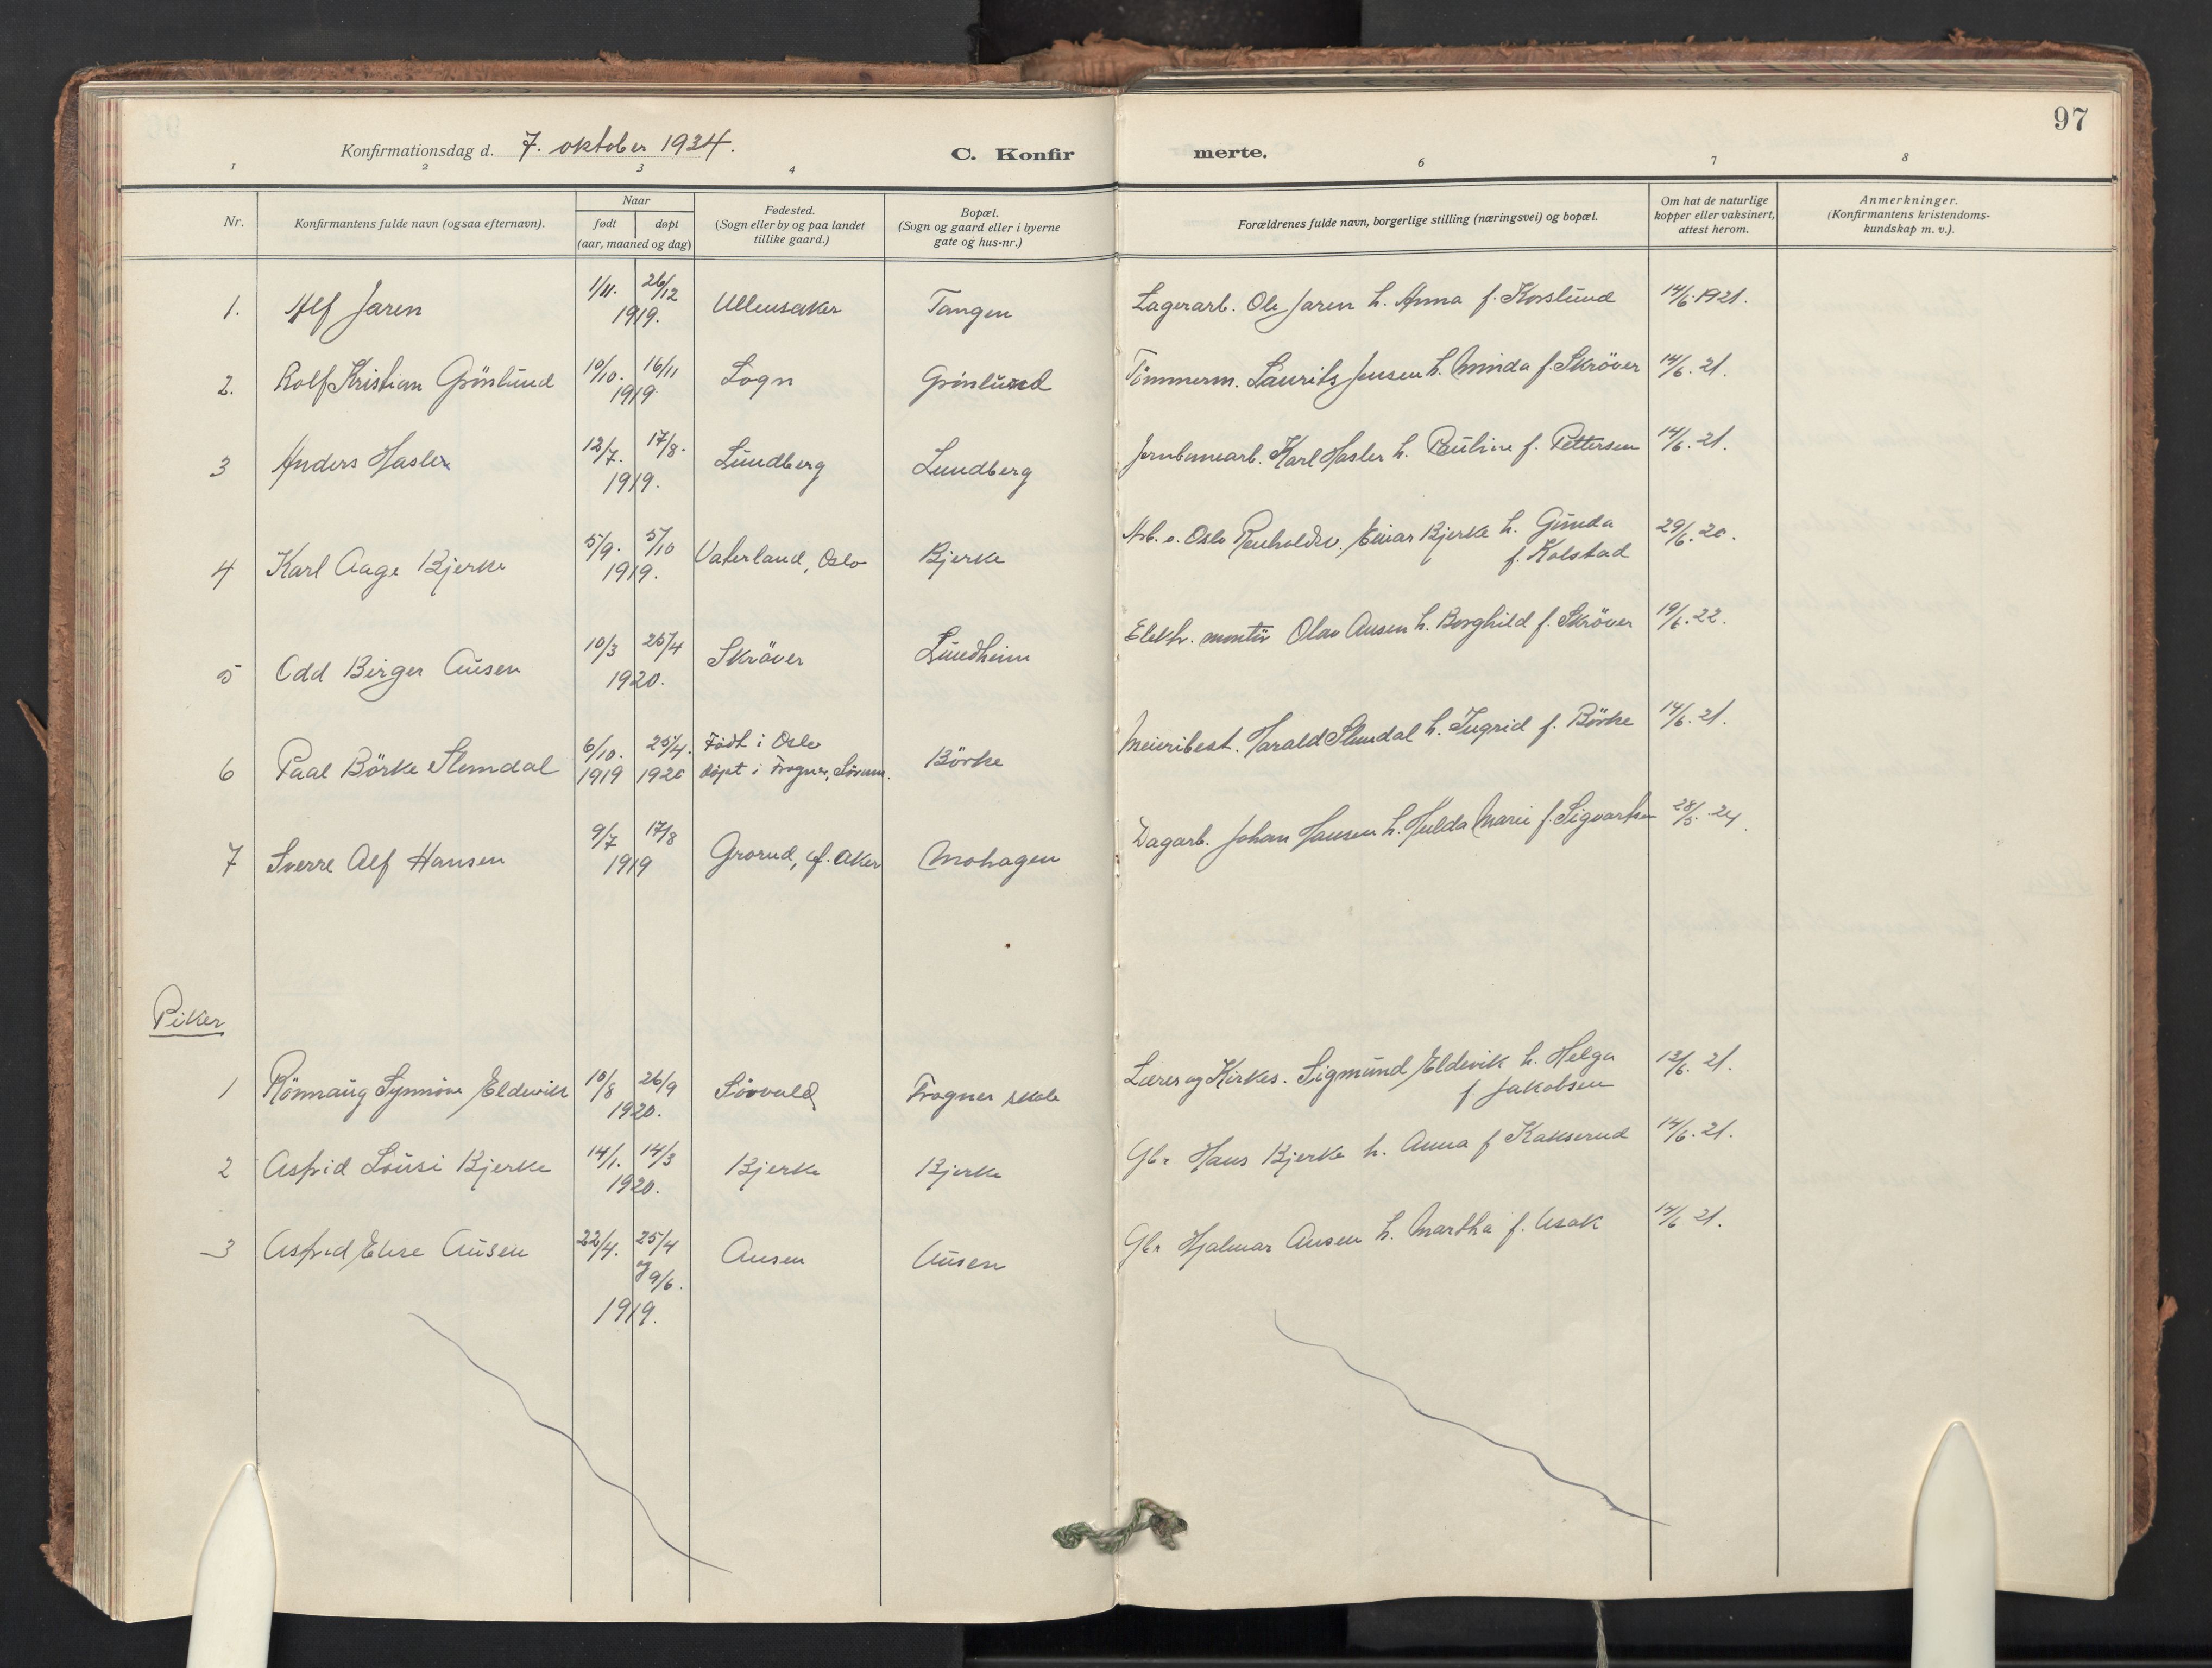 97
Konfirmationsdag d. 7. oktober 1934.
C. Konfirmerte.
1 2 3 4 6 7 8
Nr.
Konfirmantens fulde navn (ogsaa efternavn).
Naar
født døpt
(aar, maaned og dag)
Fødested.
(Sogn eller by og paa landet
tillike gaard.)
Bopæl.
(Sogn og gaard eller i byerne
gate og hus-nr.)
Forældrenes fulde navn, borgerlige stilling (næringsvei) og bopæl.
Om hat de naturlige
kopper eller vaksinert,
attest herom.
Anmerkninger.
(Konfirmantens kristendoms-
kundskap m. v.).
1. Alf Jaren 1/11. 26/12 1919. Ullensaker Tangen Lagerarb. Ole Jaren h. Anna f. Korslund 14/6.1921.
2. Rolf Kristian Grönlund 10/10. 16/11 1919 Logn Grönlund Tömmerm. Laurits Jensen h. Minda f. Skröver 14/6.21.
3 Anders Hasler 12/7. 17/8. 1919. Lundberg Lundberg Jernbanearb. Karl Hasler h. Pauline f. Pettersen 14/6.21.
4 Karl Aage Bjerke 5/9. 5/10 1919. Vaterland, Oslo Bjerke Arb. v. Oslo Renholdsv. Einar Bjerke h. Gunda
f. Kolstad 29/6.20.
5 Odd Birger Ausen 10/3 25/4 1920. Skröver Lundheim Elektr. montör Olav Ausen h. Borghild f. Skröver 19/6.22.
6 Paal Börke Slemdal 6/10. 1919 25/4. 1920 Födt i Oslo
döpt i Frogner, Sörum. Börke Meieribest. Harald Slemdal h. Ingrid f. Börke 14/6.21.
7 Sverre Alf Hansen 9/7 17/8 1919 Grorud, Aker Mohagen Dagarb. Johan Hansen h. Hulda Marie f. Sigvartsen 28/5.24.
Piker
1 Rönnaug Synnöve Eldevik 10/8 26/9 1920. Sörvald Frogner skole Lærer og Kirkes. Sigmund Eldevik h. Helga
f. Jakobsen 13/6.21.
2 Astrid Lousi Bjerke 14/1. 14/3 1920. Bjerke Bjerke Gbr Hans Bjerke h. Anna f Kakserud 14/6.21.
3 Astrid Elise Ausen 22/4. 25/4
og 9/6.
1919. Ausen Ausen Gbr Hjalmar Ausen h. Martha f. Asak 14/6 21.